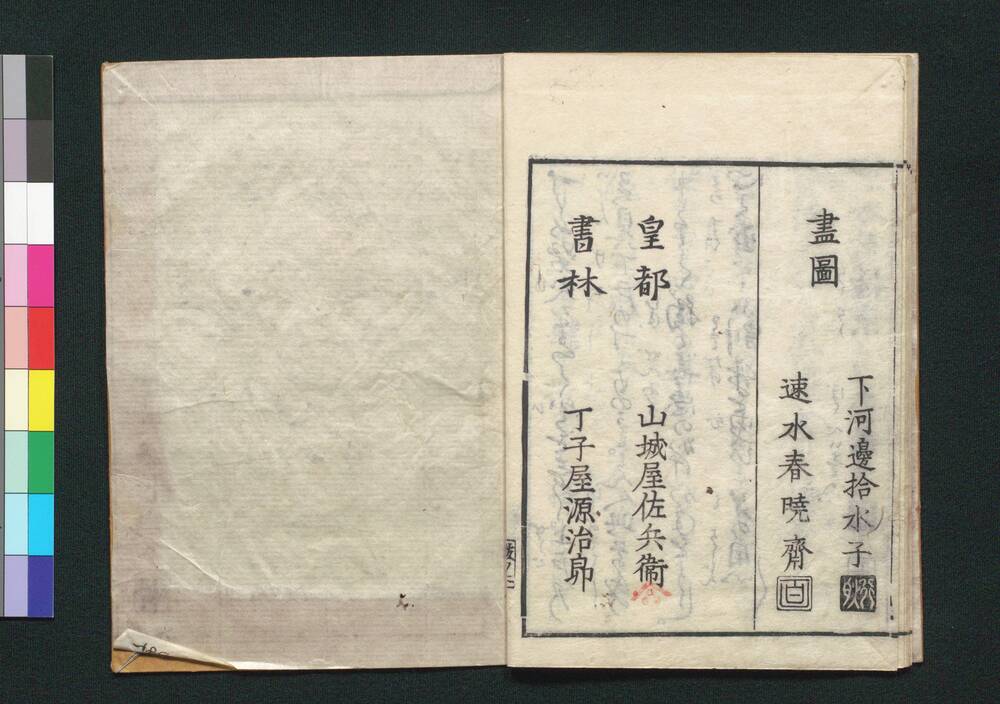 畫圖
下河邊拾水子
速水春暁齋
皇都
山城屋佐兵衞
書林
丁子屋源治郎